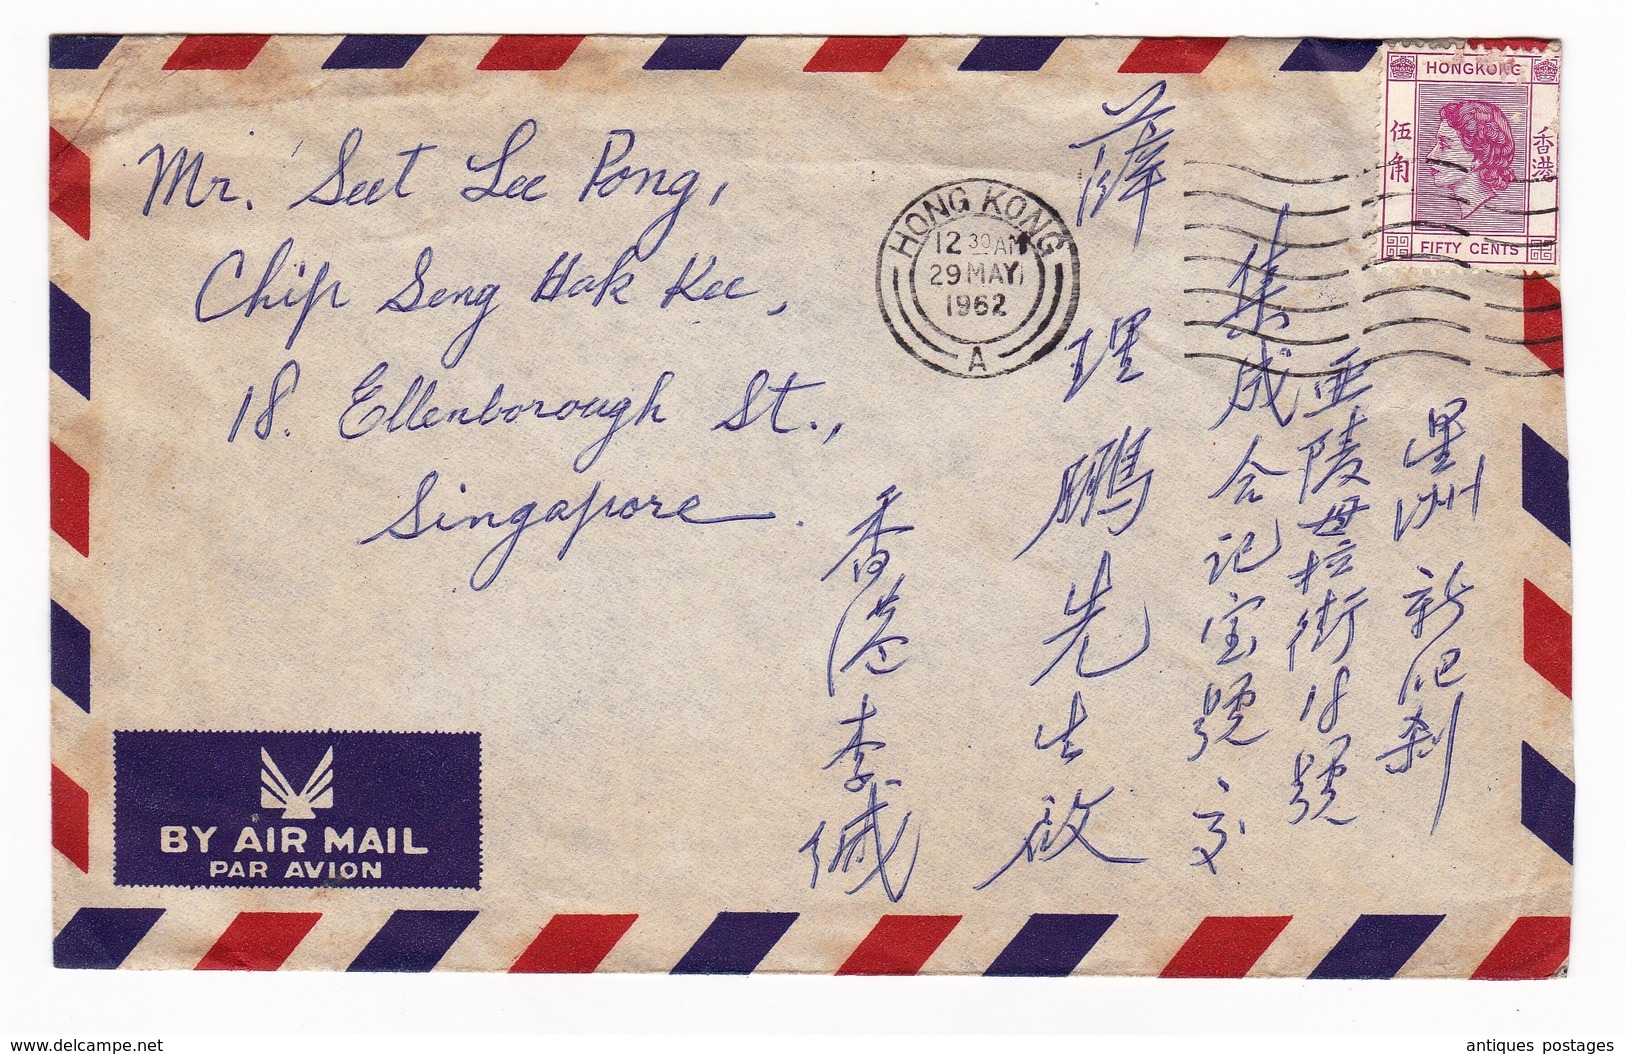 Mr. Seet Lee Pong,
Chip Seng Hak Kee,
18. Ellenborough St.,
Singapore.
HONG KONG
12 30 AM
29 MAY
1962
A
HONGKONG
伍角
香港
FIFTY CENTS
星洲新巴刹
亚陵母拉街18號
集成合記宝號交
薛理鵬先生啟
香港李緘
BY AIR MAIL
PAR AVION
www.delcampe.net
antiques postages